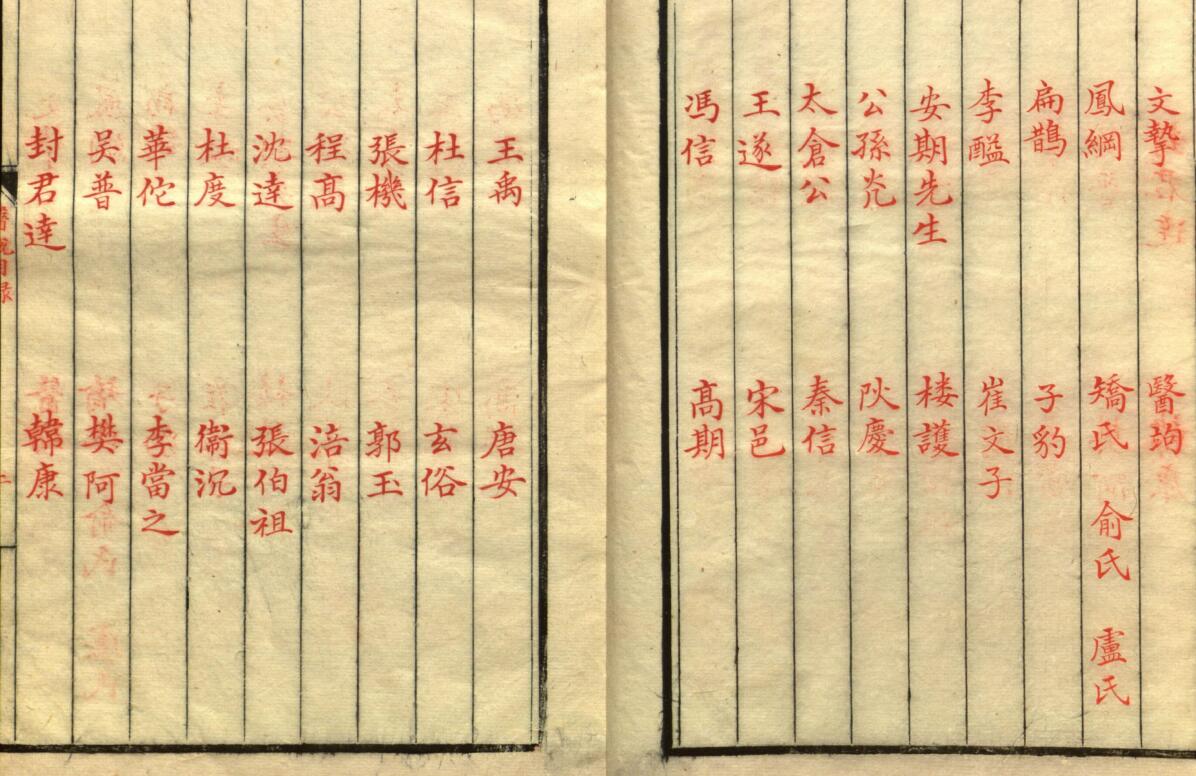 文摯 醫䂓
鳳綱 矯氏 俞氏 盧氏
扁鵲 子豹
李醯 崔文子
安期先生 楼護
公孫光 㹟慶
太倉公 秦信
王遂 宋邑
馮信 高期
王禹 唐安
杜信 玄俗
張機 郭玉
程高 涪翁
沈達 張伯祖
杜度 衞沉
華佗 李當之
吳普 樊阿
封君達 韓康
醫說目錄